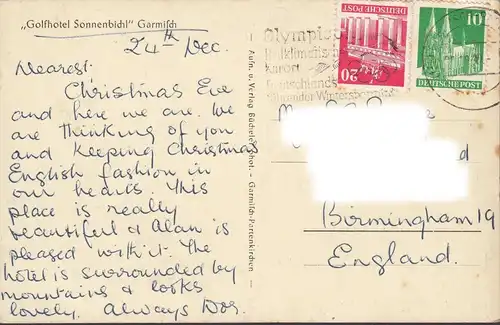 „Golfhotel Sonnenbichl" Garmisch
24th Dec.
Nearest.
Christmas Eve
and here we are. We
are thinking of you
and keeping Christmas
English fashion in
our hearts. This
place is really
beautiful & Alan is
pleased with it. The
hotel is surrounded by
mountains & looks
lovely. Always Dos.
Aufn. u. Verlag
Garmisch-Partenkirchen
Olympia
kurort
Deutschlands
führender Wintersportplatz
DEUTSCHE POST
20
10
DEUTSCHE POST
Birmingham 19
England.